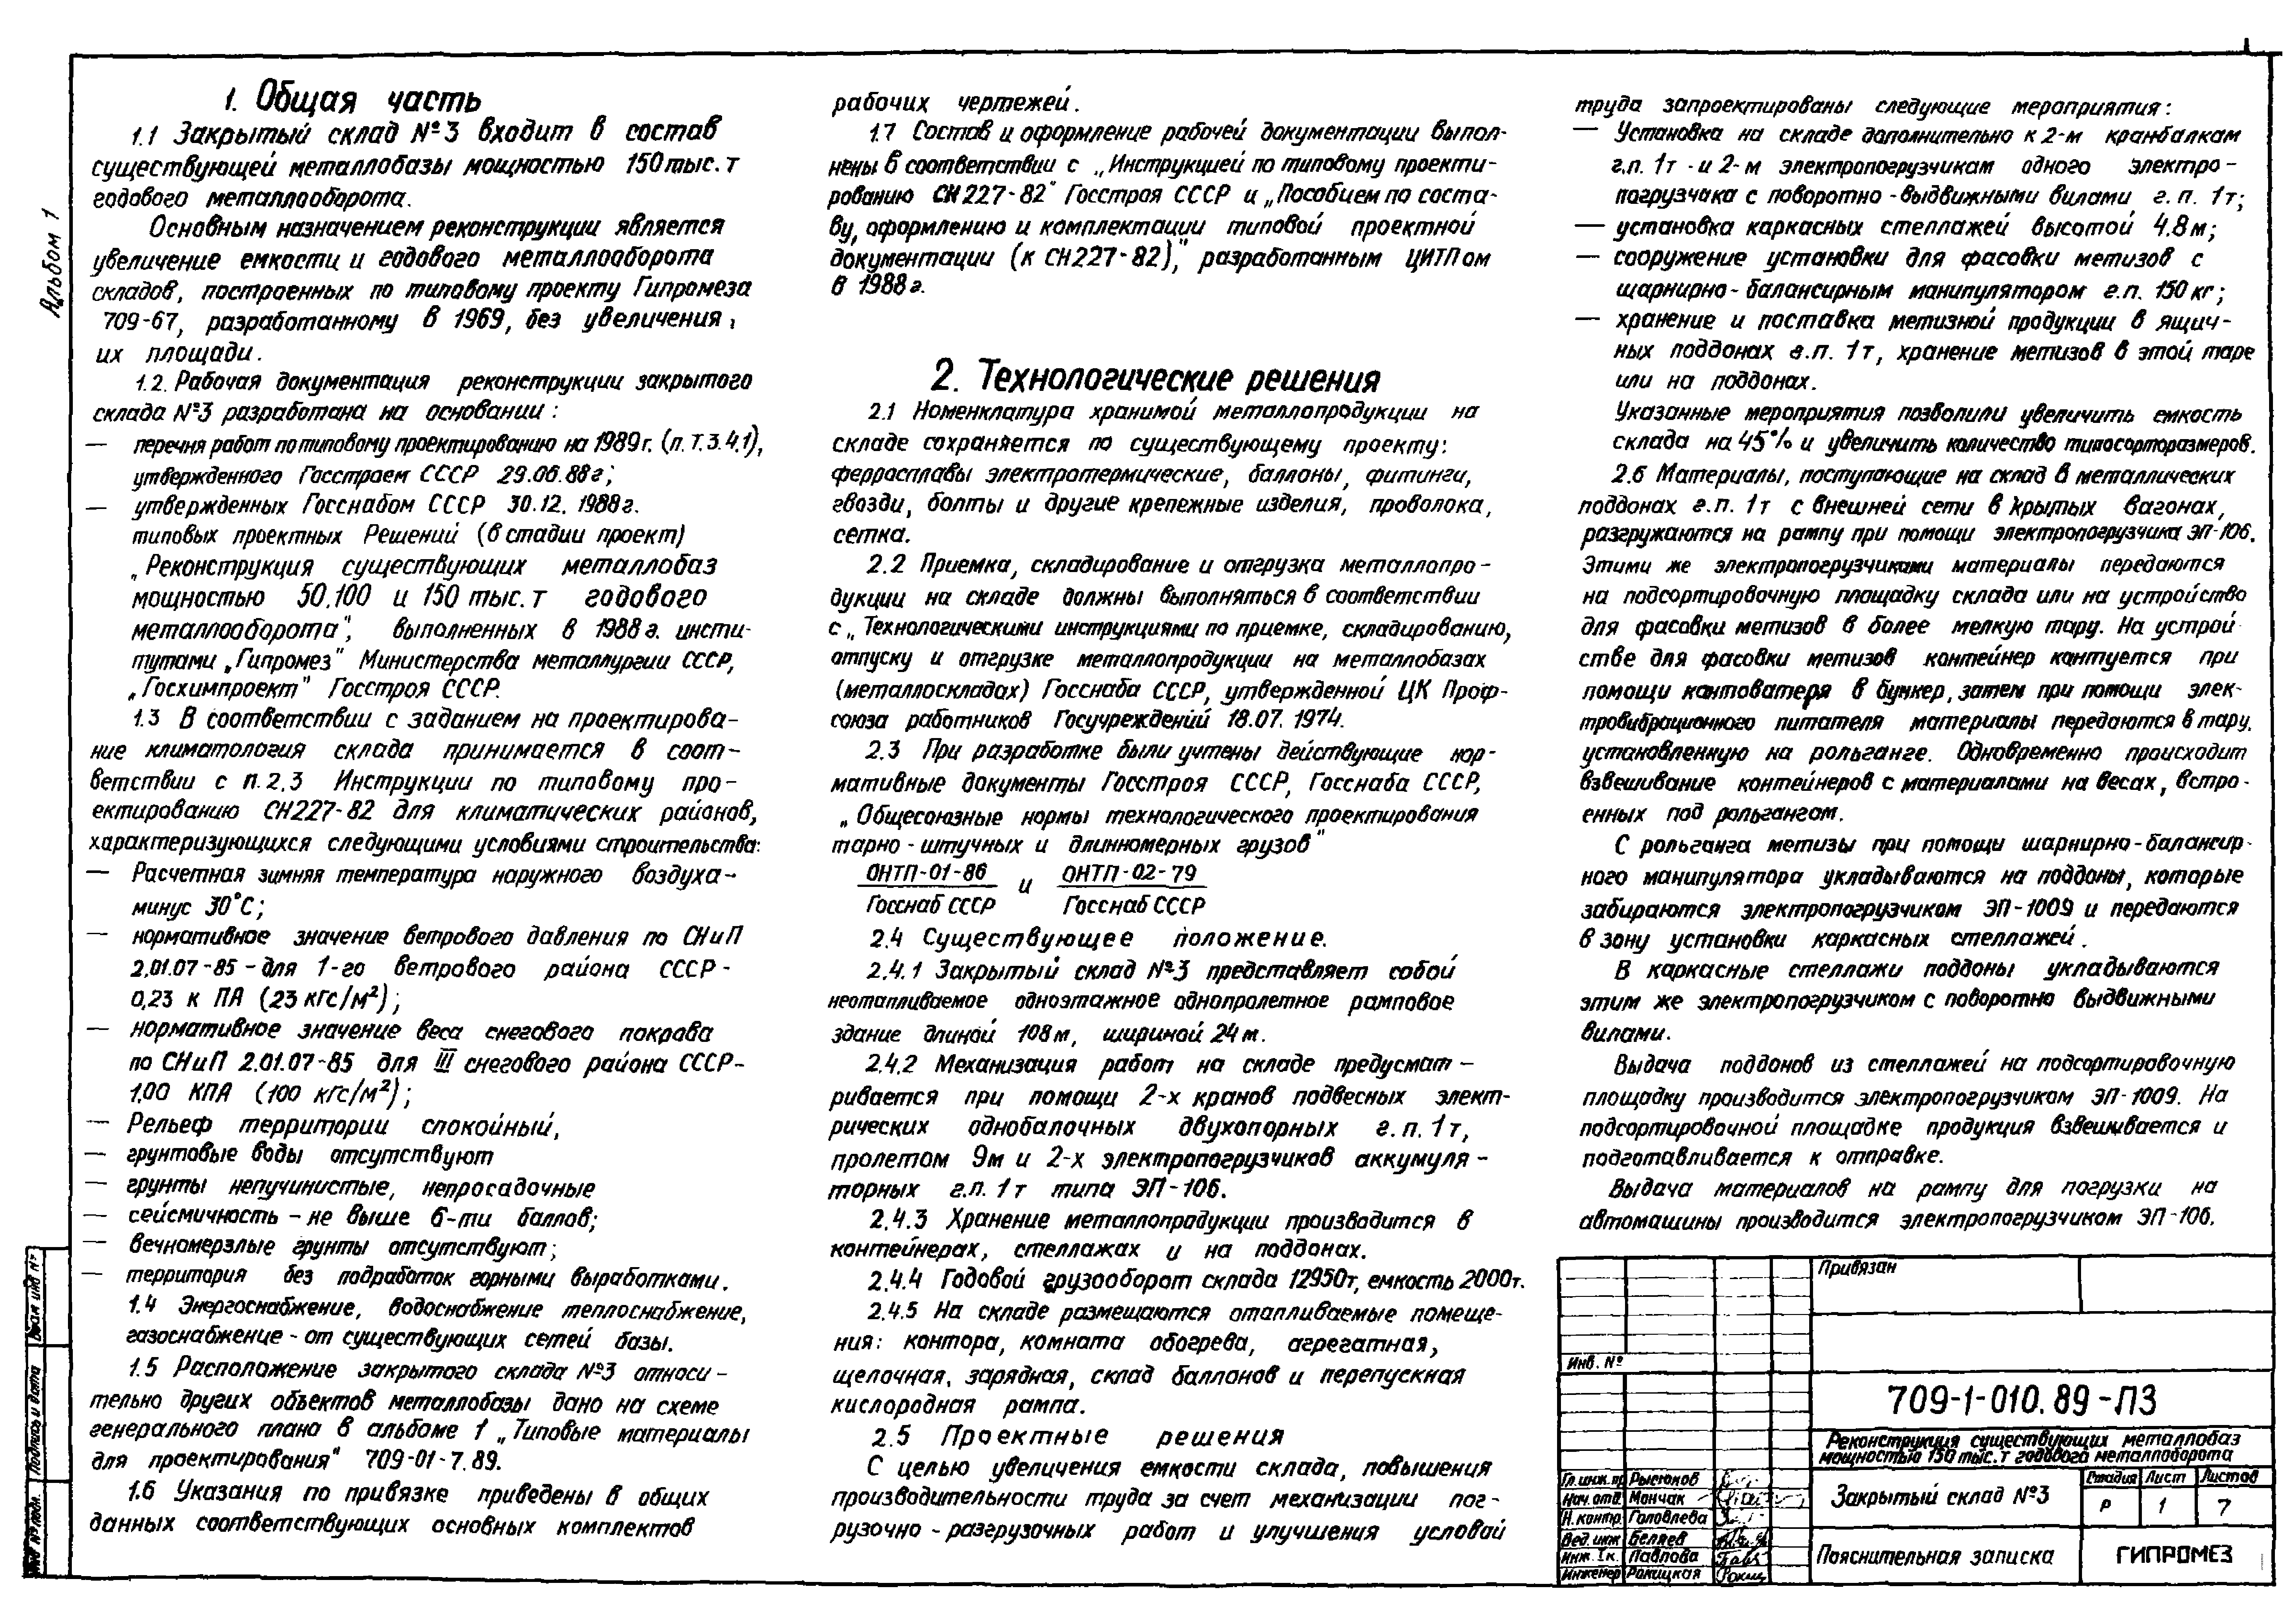 Альбом 1
1. Общая часть
1.1 Закрытый склад №3 входит в состав
существующей металлобазы мощностью 150 тыс. т
годового металлооборота.
Основным назначением реконструкции является
увеличение емкости и годового металлооборота
складов, построенных по типовому проекту Гипромеза
709-67, разработанному в 1969, без увеличения
их площади.
1.2. Рабочая документация реконструкции закрытого
склада №3 разработана на основании:
— перечня работ по типовому проектированию на 1989г. (п. Т.3.4.1),
утвержденного Госстроем СССР 29.06.88г;
— утвержденных Госснабом СССР 30.12.1988г.
типовых проектных Решений (в стадии проект)
„Реконструкция существующих металлобаз
мощностью 50,100 и 150 тыс. т годового
металлооборота", выполненных в 1988г. инсти-
тутами „Гипромез" Министерства металлургии СССР,
„Госхимпроект" Госстроя СССР.
1.3 В соответствии с заданием на проектирова-
ние климатология склада принимается в соот-
ветствии с п.2.3 Инструкции по типовому про-
ектированию СН227-82 для климатических районов,
характеризующихся следующими условиями строительства:
— Расчетная зимняя температура наружного воздуха-
минус 30°С;
— нормативное значение ветрового давления по СНиП
2.01.07-85-для 1-го ветрового района СССР-
0,23 к ПА (23 кгс/м²);
— нормативное значение веса снегового покрова
по СНиП 2.01.07-85 для III снегового района СССР-
1,00 КПА (100 кгс/м²);
— Рельеф территории спокойный,
— грунтовые воды отсутствуют
— грунты непучинистые, непросадочные
— сейсмичность - не выше 6-ти баллов;
— вечномерзлые грунты отсутствуют;
— территория без подработок горными выработками.
1.4 Энергоснабжение, водоснабжение теплоснабжение,
газоснабжение - от существующих сетей базы.
1.5 Расположение закрытого склада №3 относи-
тельно других объектов металлобазы дано на схеме
генерального плана в альбоме 1 „Типовые материалы
для проектирования" 709-01-7.89.
1.6 Указания по привязке приведены в общих
данных соответствующих основных комплектов
рабочих чертежей.
1.7 Состав и оформление рабочей документации выпол-
нены в соответствии с „Инструкцией по типовому проекти-
рованию СН 227-82" Госстроя СССР и „Пособием по соста-
ву, оформлению и комплектации типовой проектной
документации (к СН227-82)," разработанным ЦИТПом
в 1988г.
2. Технологические решения
2.1 Номенклатура хранимой металлопродукции на
складе сохраняется по существующему проекту:
ферросплавы электротермические, баллоны, фитинги,
гвозди, болты и другие крепежные изделия, проволока,
сетка.
2.2 Приемка, складирование и отгрузка металлопро-
дукции на складе должны выполняться в соответствии
с „Технологическими инструкциями по приемке, складированию,
отпуску и отгрузке металлопродукции на металлобазах
(металлоскладах) Госснаба СССР, утвержденной ЦК Проф-
союза работников Госучреждений 18.07.1974.
2.3 При разработке были учтены действующие нор-
мативные документы Госстроя СССР, Госснаба СССР,
„Общесоюзные нормы технологического проектирования
тарно-штучных и длинномерных грузов"
ОНТП-01-86 и ОНТП-02-79
Госснаб СССР Госснаб СССР
2.4 Существующее положение.
2.4.1 Закрытый склад №3 представляет собой
неотапливаемое одноэтажное однопролетное рамповое
здание длиной 108м, шириной 24м.
2.4.2 Механизация работ на складе предусмат-
ривается при помощи 2-х кранов подвесных элект-
рических однобалочных двухопорных г.п. 1т,
пролетом 9м и 2-х электропогрузчиков аккумуля-
торных г.п. 1т типа ЭП-106.
2.4.3 Хранение металлопродукции производится в
контейнерах, стеллажах и на поддонах.
2.4.4 Годовой грузооборот склада 12950т, емкость 2000т.
2.4.5 На складе размещаются отапливаемые помеще-
ния: контора, комната обогрева, агрегатная,
щелочная, зарядная, склад баллонов и перепускная
кислородная рампа.
2.5 Проектные решения
С целью увеличения емкости склада, повышения
производительности труда за счет механизации пог-
рузочно-разгрузочных работ и улучшения условий
труда запроектированы следующие мероприятия:
— Установка на складе дополнительно к 2-м кранбалкам
г.п. 1т и 2-м электропогрузчикам одного электро-
погрузчика с поворотно-выдвижными вилами г.п. 1т;
— установка каркасных стеллажей высотой 4.8м;
— сооружение установки для фасовки метизов с
шарнирно-балансирным манипулятором г.п. 150кг;
— хранение и поставка метизной продукции в ящич-
ных поддонах г.п. 1т, хранение метизов в этой таре
или на поддонах.
Указанные мероприятия позволили увеличить емкость
склада на 45% и увеличить количество типосорторазмеров.
2.6 Материалы, поступающие на склад в металлических
поддонах г.п. 1т с внешней сети в крытых вагонах,
разгружаются на рампу при помощи электропогрузчика ЭП-106.
Этими же электропогрузчиками материалы передаются
на подсортировочную площадку склада или на устройство
для фасовки метизов в более мелкую тару. На устрой
стве для фасовки метизов контейнер кантуется при
помощи кантователя в бункер, затем при помощи элек-
тровибрационного питателя материалы передаются в тару,
установленную на рольганге. Одновременно происходит
взвешивание контейнеров с материалами на весах, встро-
енных под рольгангом.
С рольганга метизы при помощи шарнирно-балансир-
ного манипулятора укладываются на поддоны, которые
забираются электропогрузчиком ЭП-1009 и передаются
в зону установки каркасных стеллажей.
В каркасные стеллажи поддоны укладываются
этим же электропогрузчиком с поворотно выдвижными
вилами.
Выдача поддонов из стеллажей на подсортировочную
площадку производится электропогрузчиком ЭП-1009. На
подсортировочной площадке продукция взвешивается и
подготавливается к отправке.
Выдача материалов на рампу для погрузки на
автомашины производится электропогрузчиком ЭП-106.
Привязан
Инв. №
709-1-010.89-ПЗ
Реконструкция существующих металлобаз
мощностью 150 тыс. т годового металлоборота
Гл. инж. пр Рысюков
Нач. отд. Мончак
Н. контр. Головлева
Вед. инж Беляев
Инж. I к. Павлова
Инженер Ракицкая
Закрытый склад №3
Стадия Лист Листов
Р 1 7
Пояснительная записка
ГИПРОМЕЗ
Взам инв №
Подпись и дата
Инв № подл.